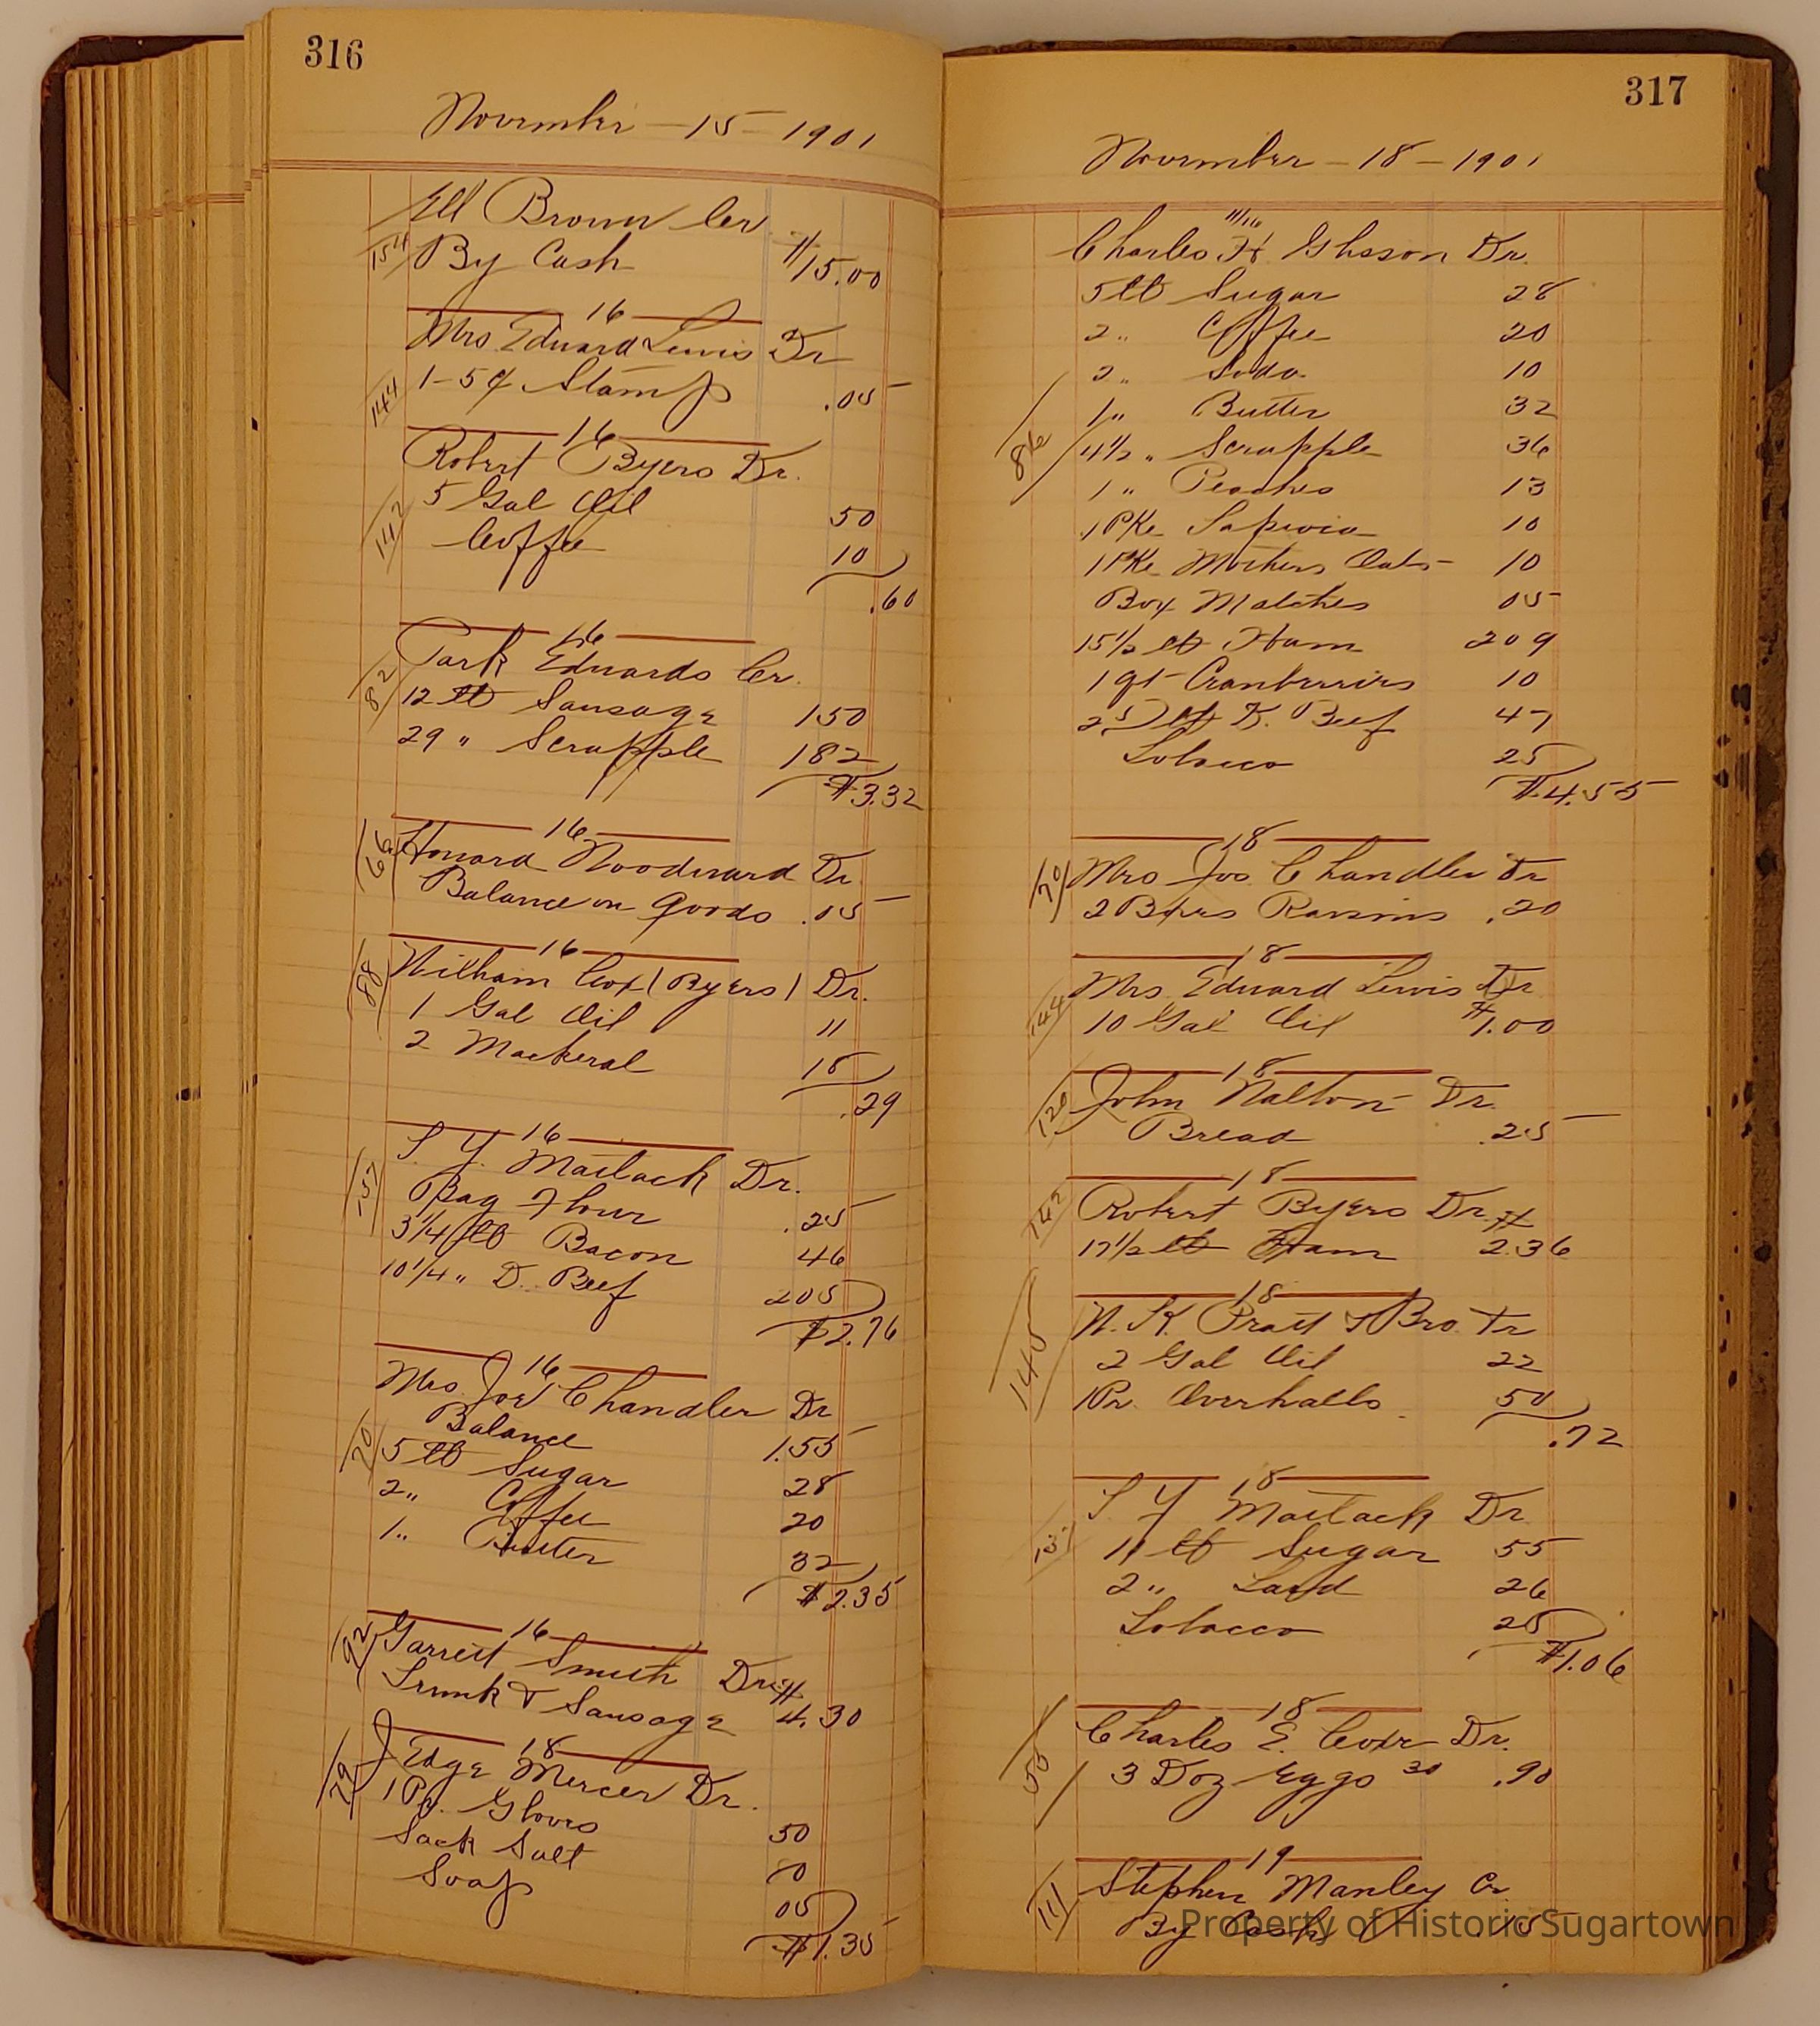 316
November - 15 - 1901
Ell Brown Cr
154 By Cash $15.00
16
Mrs Edward Lewis Dr
144 1-5¢ Stamp .05
16
Robert Byers Dr.
142 5 Gal Oil 50
Coffee 10
.60
16
Park Edwards Cr.
82 12 lb Sausage 150
29 " Scrapple 182
$3.32
16
66 Howard Woodward Dr
Balance on goods .05
16
88 William Cox (Byers) Dr.
1 Gal Oil 11
2 Mackeral 18
.29
16
S Y. Matlack Dr.
137 Bag Flour .25
3 1/4 lb Bacon 46
10 1/4 " D. Beef 205
$2.76
16
Mrs. Jos Chandler Dr
Balance 1.55
70 5 lb Sugar 28
2 " Coffee 20
1 " Butter 32
$2.35
16
92 Garrett Smith Dr $
Trunk & Sausage 4.30
18
79 J Edge Mercer Dr.
1 Pr. Gloves 50
Sack Salt 80
Soap 05
$1.35
317
November - 18 - 1901
11/16
Charles H. Dr.
5 lb Sugar 28
2 " Coffee 20
2 " Soda 10
1 " Butter 32
86 4 1/2 " Scrapple 36
1 " Peaches 13
1 PKe Tapioca 10
1 PKe Mothers Oats 10
Box Matches 05
15 1/2 lb Ham 209
1 qt Cranberries 10
lb D. Beef 47
Tobacco 25
$4.55
18
70 Mrs Jos Chandler Dr
2 Boxes Raisins .20
18
Mrs Edward Lewis Dr
144 10 Gal Oil $1.00
18
120 John Walton Dr.
Bread .25
18
142 Robert Byers Dr $
17 1/2 lb Ham 2.36
18
W. K. Pratt & Bro. Dr
145 2 Gal Oil 22
1 Pr. Overhalls 50
.72
18
S Y Matlack Dr
137 11 lb Sugar 55
2 " Lard 26
Tobacco 25
$1.06
18
Charles E. Coxe Dr.
55 3 Doz Eggs 30 .90
19
111 Stephen Manley Cr
By Cash .15
Property of Historic Sugartown